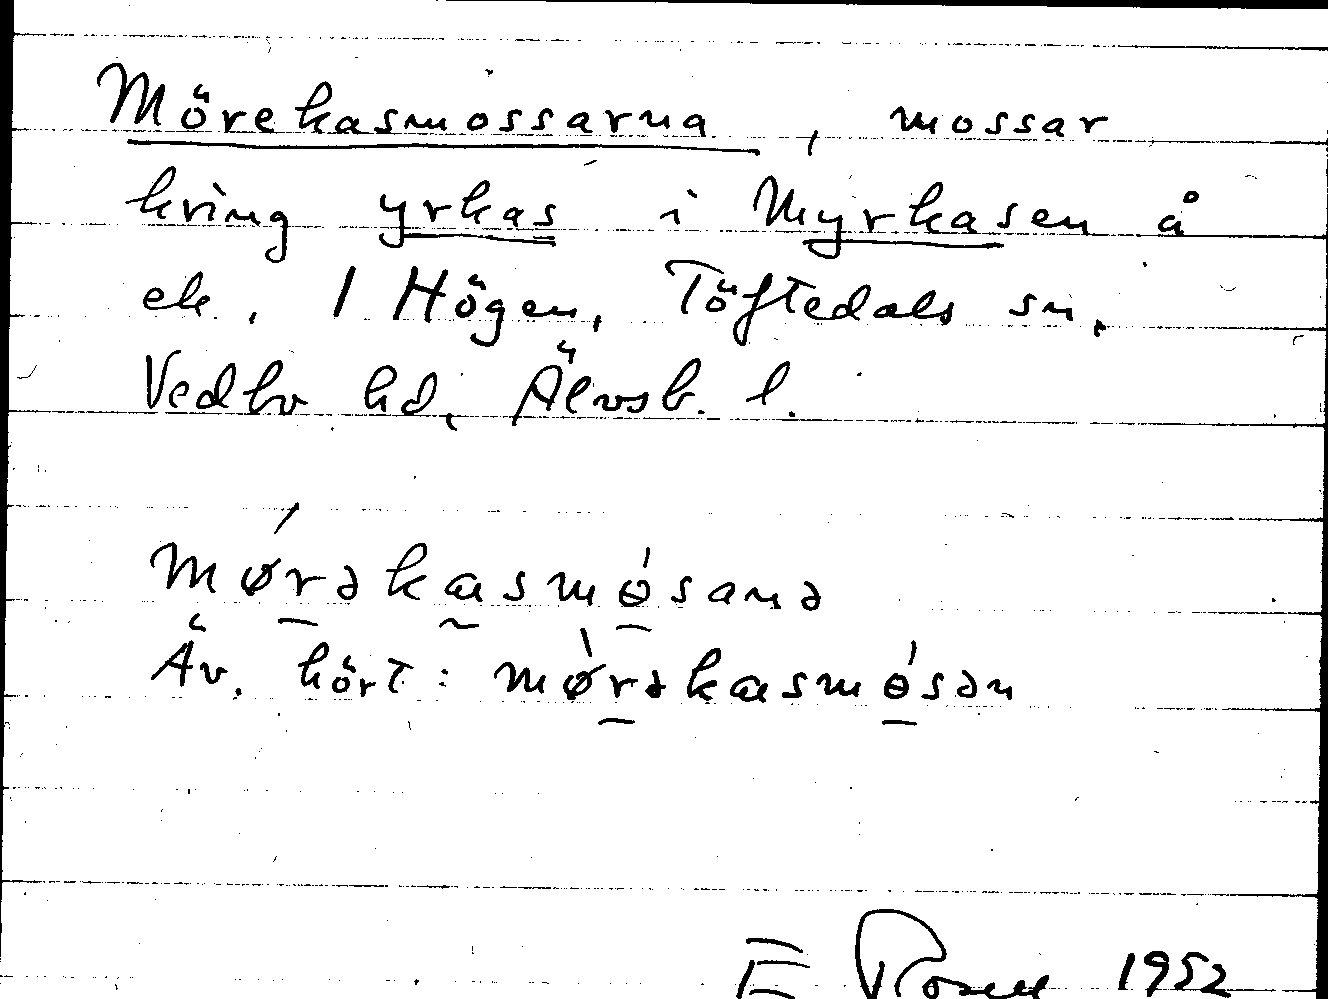 Mörekasmossarna, mossar
kring yrkas i Myrkasen å
ek. 1 Högen, Töftedals sn,
Vedbo hd, Älvsb. l.
Mørəkasmósanə
Äv. hört: mørəkasmósən
E Rosell 1952